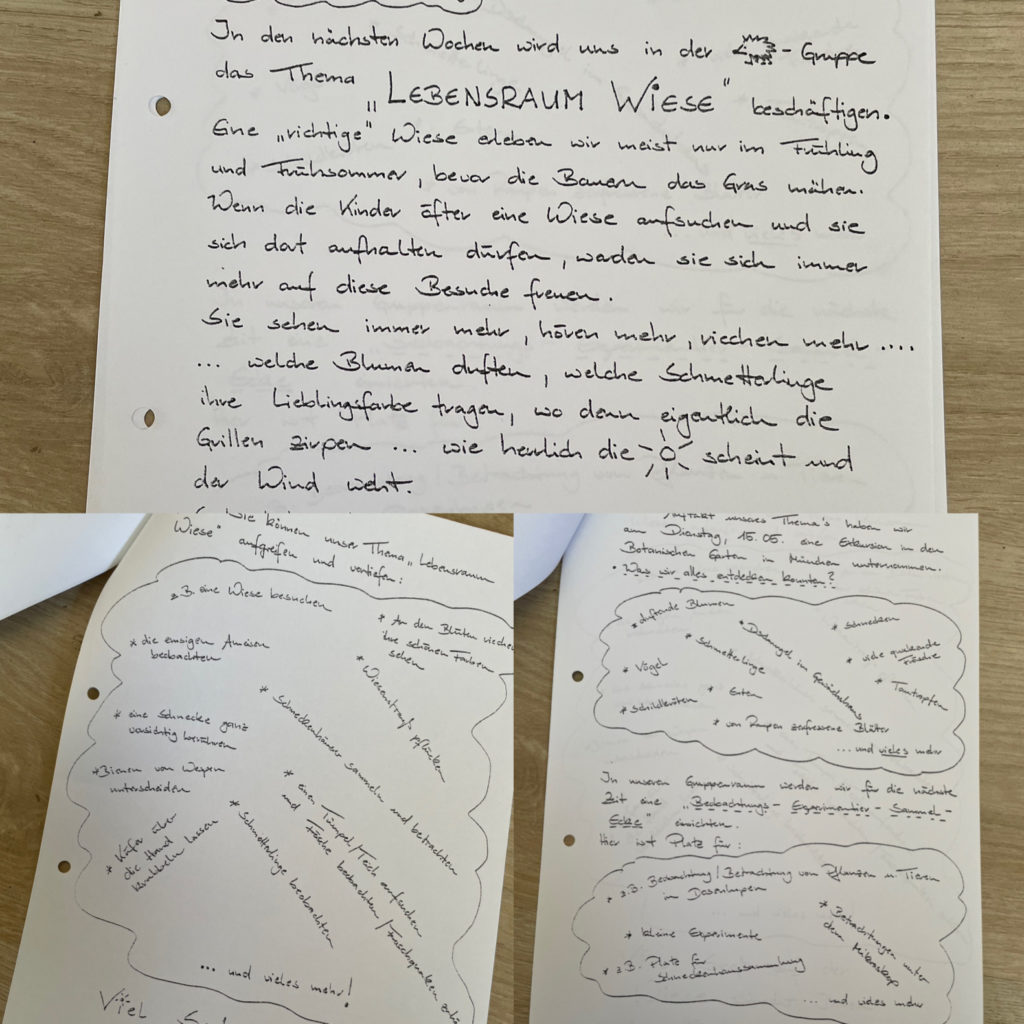 In den nächsten Wochen wird uns in der -Gruppe
das Thema „LEBENSRAUM WIESE" beschäftigen.
Eine „richtige" Wiese erleben wir meist nur im Frühling
und Frühsommer, bevor die Bauern das Gras mähen.
Wenn die Kinder öfter eine Wiese aufsuchen und sie
sich dort aufhalten dürfen, werden sie sich immer
mehr auf diese Besuche freuen.
Sie sehen immer mehr, hören mehr, riechen mehr ....
... welche Blumen duften, welche Schmetterlinge
ihre Lieblingsfarbe tragen, wo denn eigentlich die
Grillen zirpen ... wie herrlich die scheint und
der Wind weht.
Wie können unser Thema „Lebensraum
Wiese" aufgreifen und vertiefen:
z.B. eine Wiese besuchen
* An den Blüten riechen
ihre schönen Farben
sehen
* die emsigen Ameisen
beobachten
* Wiesenstrauß pflücken
* Schneckenhäuser sammeln und betrachten
* eine Schnecke ganz
vorsichtig berühren
* Bienen von Wespen
unterscheiden
* einen Tümpel/Teich aufsuchen
und Frösche beobachten/Froschquaken
* Schmetterlinge beobachten
* Käfer über
die Hand
krabbeln lassen
... und vieles mehr!
Viel
Auftakt unseres Thema's haben wir
am Dienstag, 15.05. eine Exkursion in den
Botanischen Garten in München unternommen.
• Was wir alles entdecken konnten?
* duftende Blumen
* Schmetterlinge
* Dschungel im Gewächshaus
* Schnecken
* viele quakende
Frösche
* Vögel
* Enten
* Tonttopfen
* Schildkröten
* von Raupen zerfressene Blätter
... und vieles mehr
In unseren Gruppenraum werden wir für die nächste
Zeit eine „Beobachtungs-Experimentier-Sammel-
Ecke" einrichten.
Hier ist Platz für:
* z.B. Beobachtung/Betrachtung von Pflanzen u. Tieren
in Dosenlupen
* Betrachtungen unter
dem Mikroskop
* kleine Experimente
* z.B. Platz für
Schneckenhaussammlung
... und vieles mehr